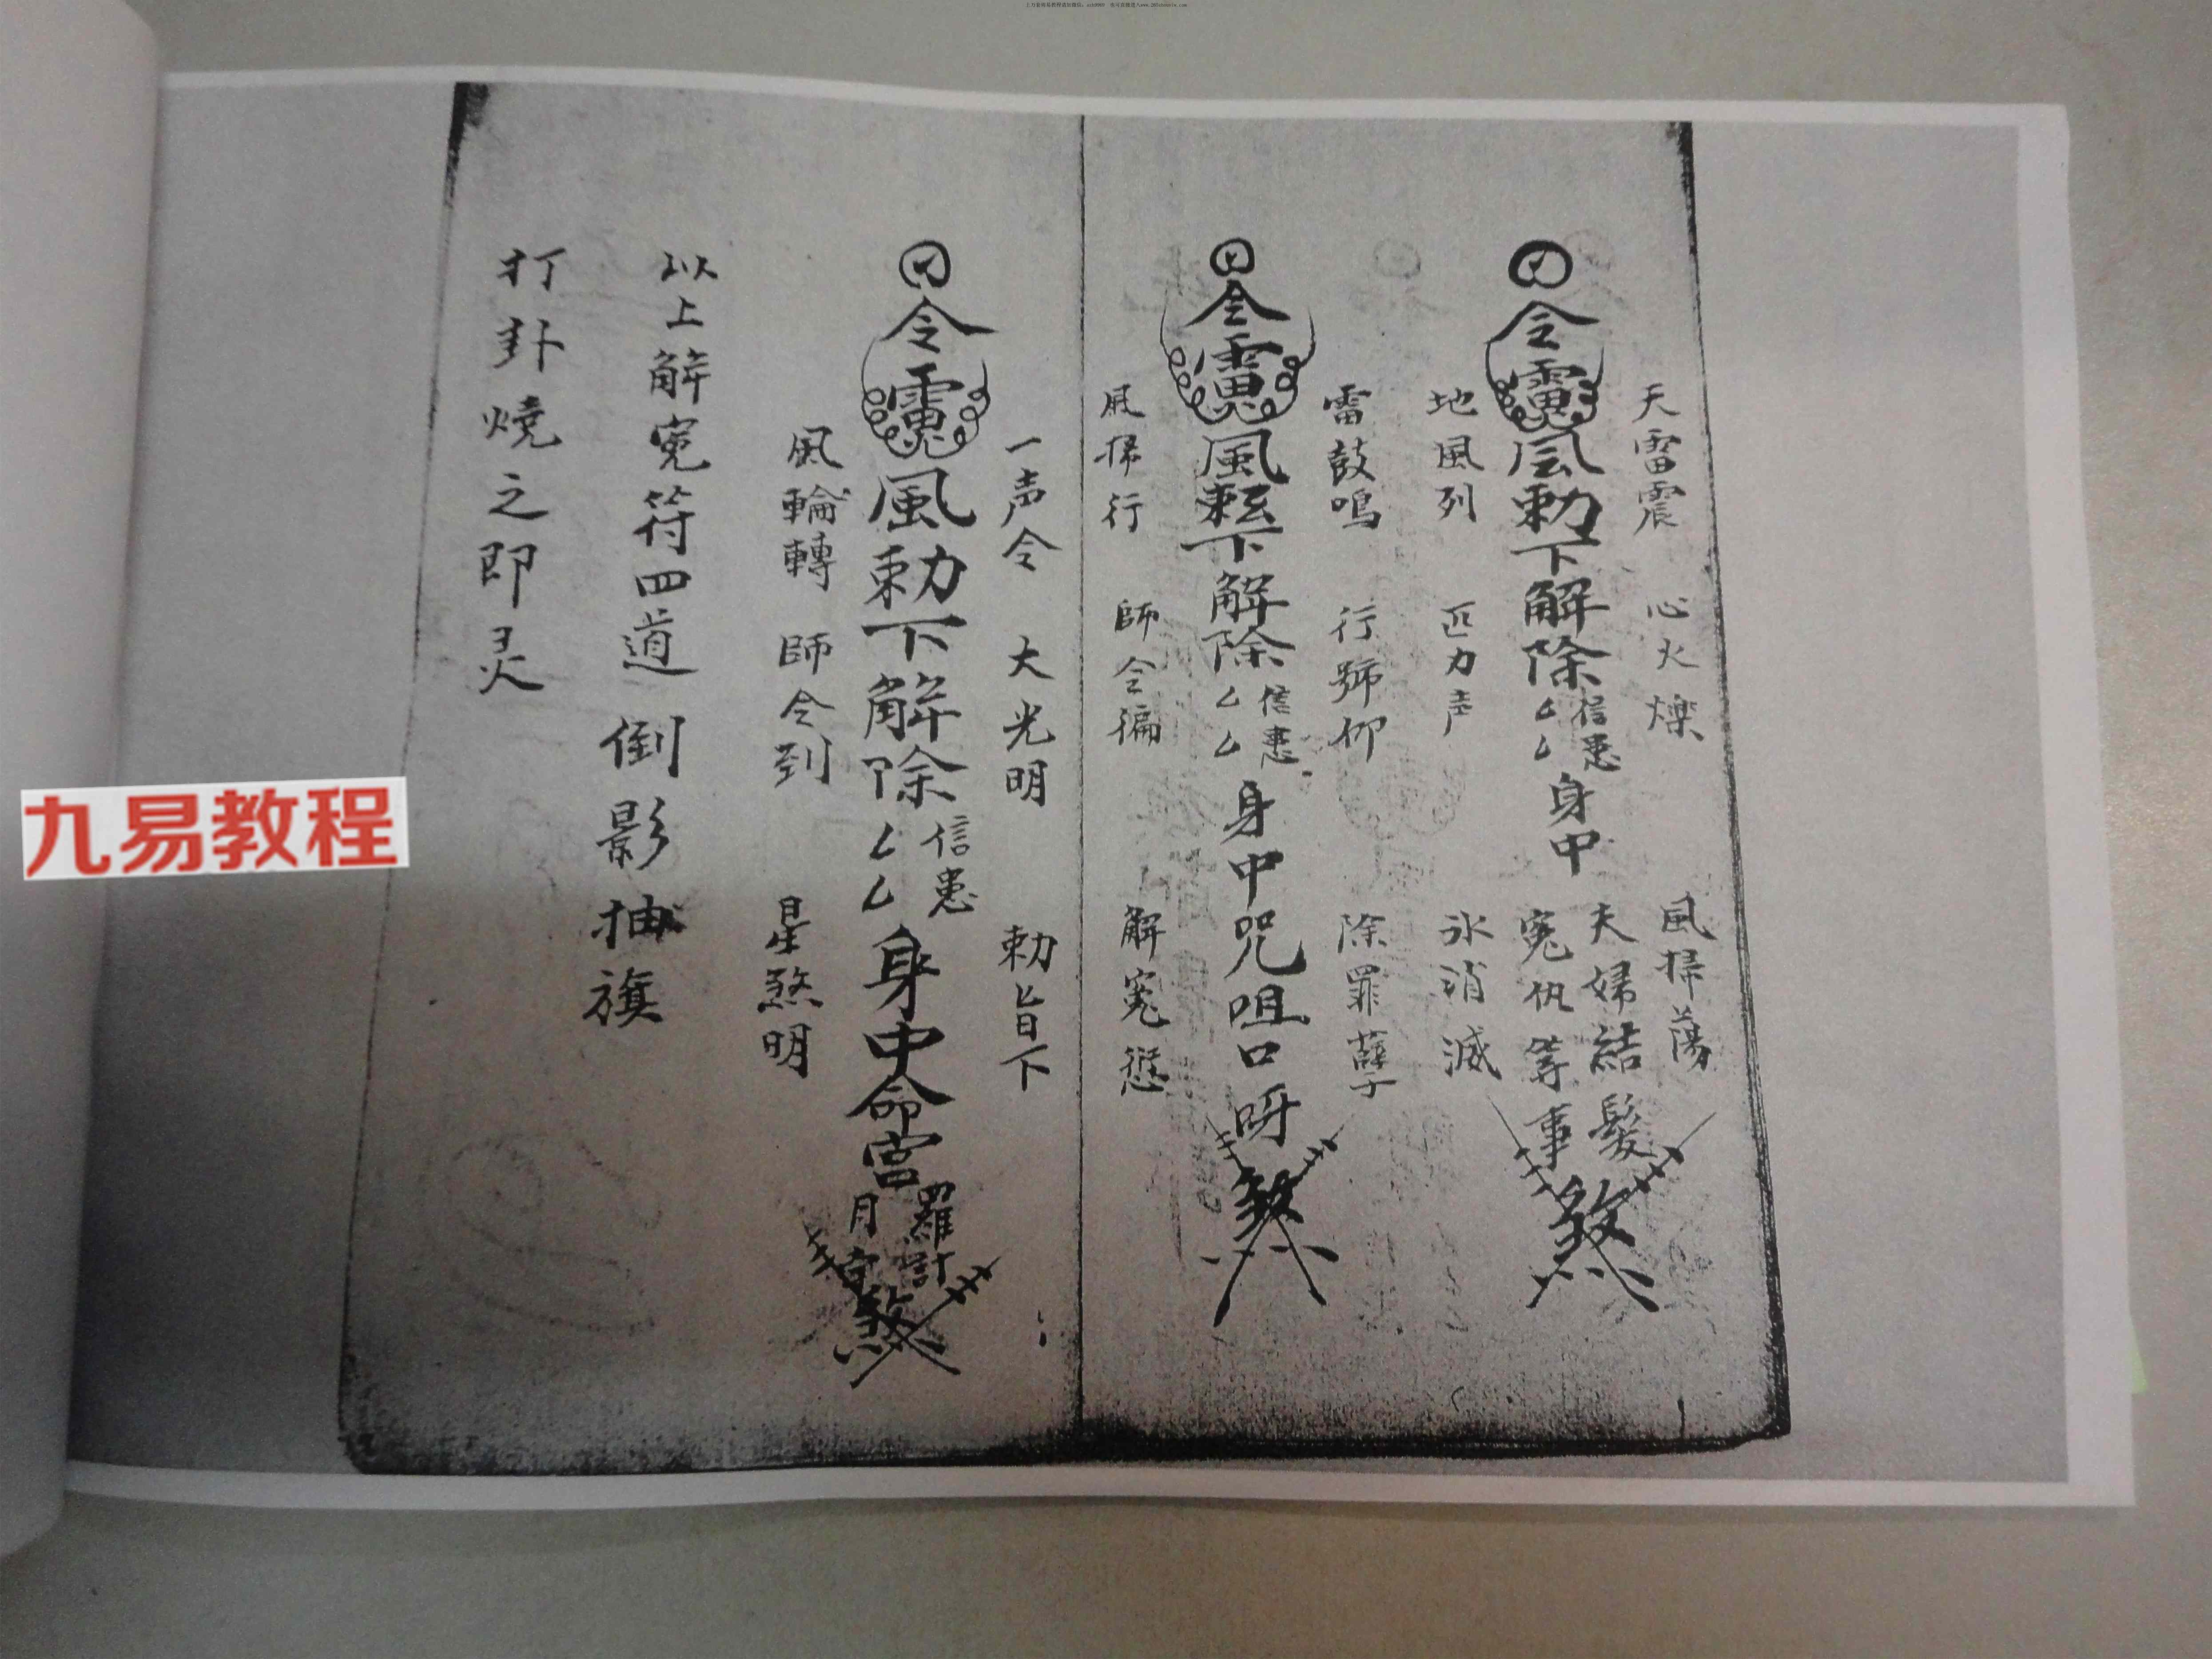 天雷震 心火爍 風掃蕩
令
風勅下解除信患厶厶身中夫婦結髮冤仇等事煞
地風列 匹力声 氷消滅
雷鼓鳴 行號仰 除罪孽
令
風勅下解除信患厶厶身中咒咀口呀煞
風掃行 師令徧 解冤愆
一声令 大光明 勅旨下
令
風勅下解除信患厶厶身中命宮羅計月孛煞
風輪轉 師令到 星煞明
以上解冤符四道 倒影抽旗
打卦燒之即灵
九易教程